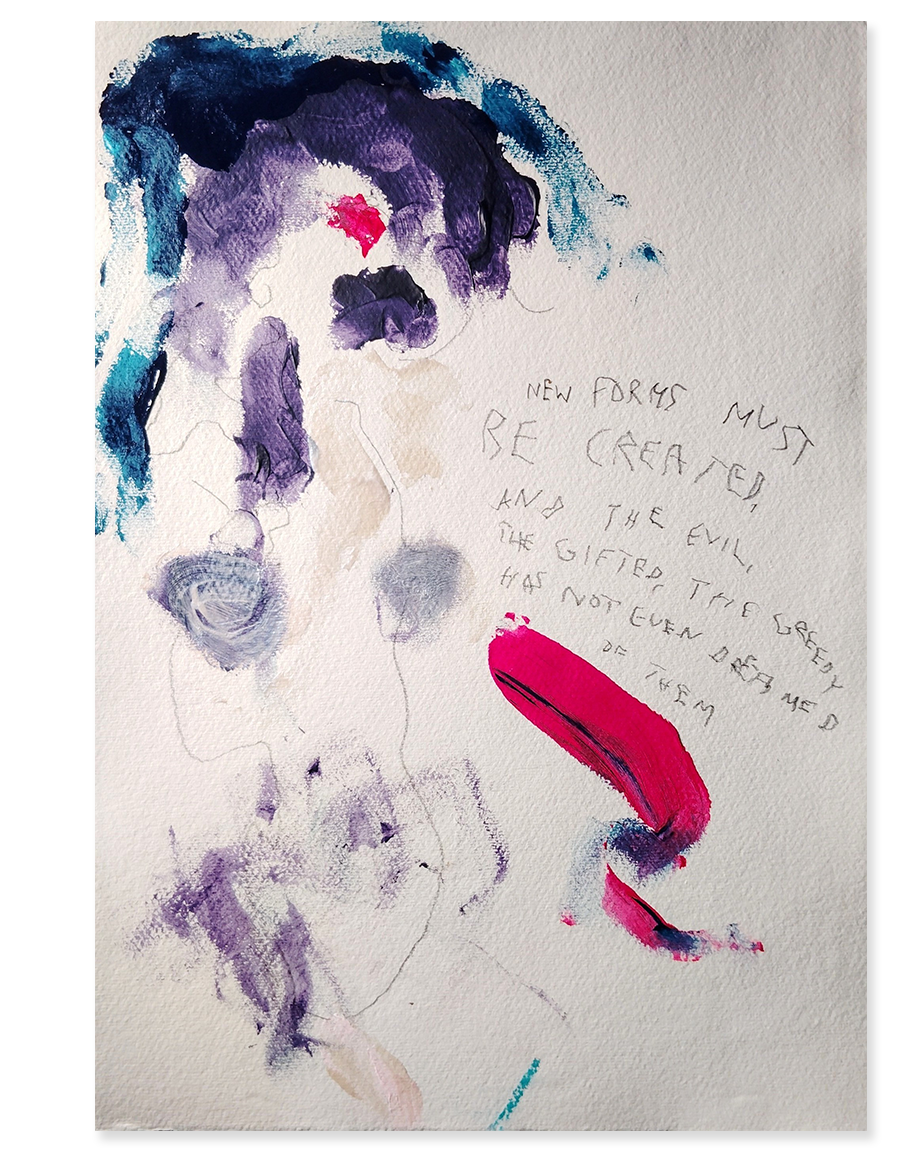 NEW FORMS MUST
BE CREATED,
AND THE EVIL,
THE GIFTED, THE GREEDY
HAS NOT EVEN DREAMED
OF THEM